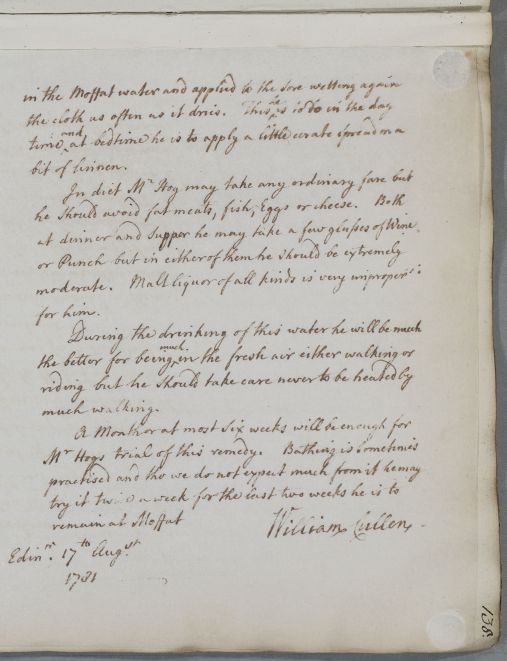 in the Moffat water and applied to the sore wetting again
the cloth as often as it dries. This he is to do in the day
time and at bedtime he is to apply a little cerate spread on a
bit of linnen.
In diet Mr Hog may take any ordinary fare but
he should avoid fat meats, fish, Eggs or cheese. Both
at dinner and supper he may take a few glasses of Wine
or Punch but in either of them he should be extremely
moderate. Malt liquor of all kinds is very improper
for him.
During the drinking of this water he will be much
the better for being much in the fresh air either walking or
riding but he should take care never to be heated by
much walking.
A Month or at most six weeks will be enough for
Mr Hogs trial of this remedy. Bathing is sometimes
practised and tho we do not expect much from it he may
try it twice a week for the last two weeks he is to
remain at Moffat
William Cullen
Edinr. 17th Augst
1781
138.